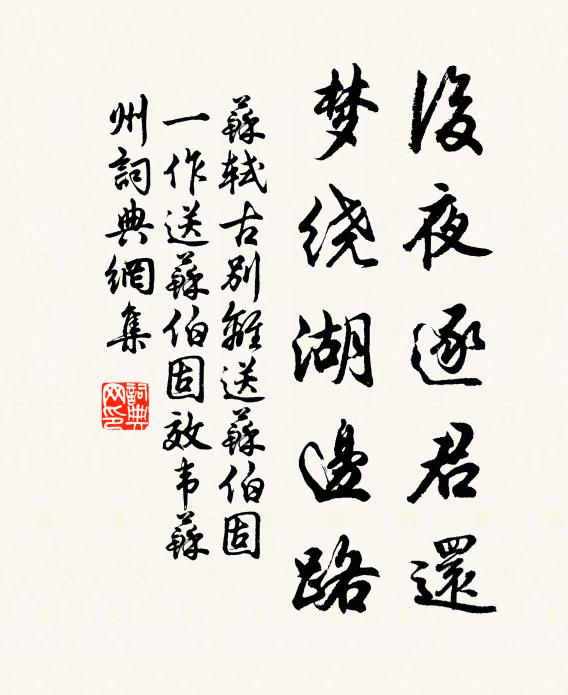 後夜逐君還
梦绕湖邊路
蘇軾古别離送蘇伯固
一作送蘇伯固效韦蘇
州詞典網集
詞典网印